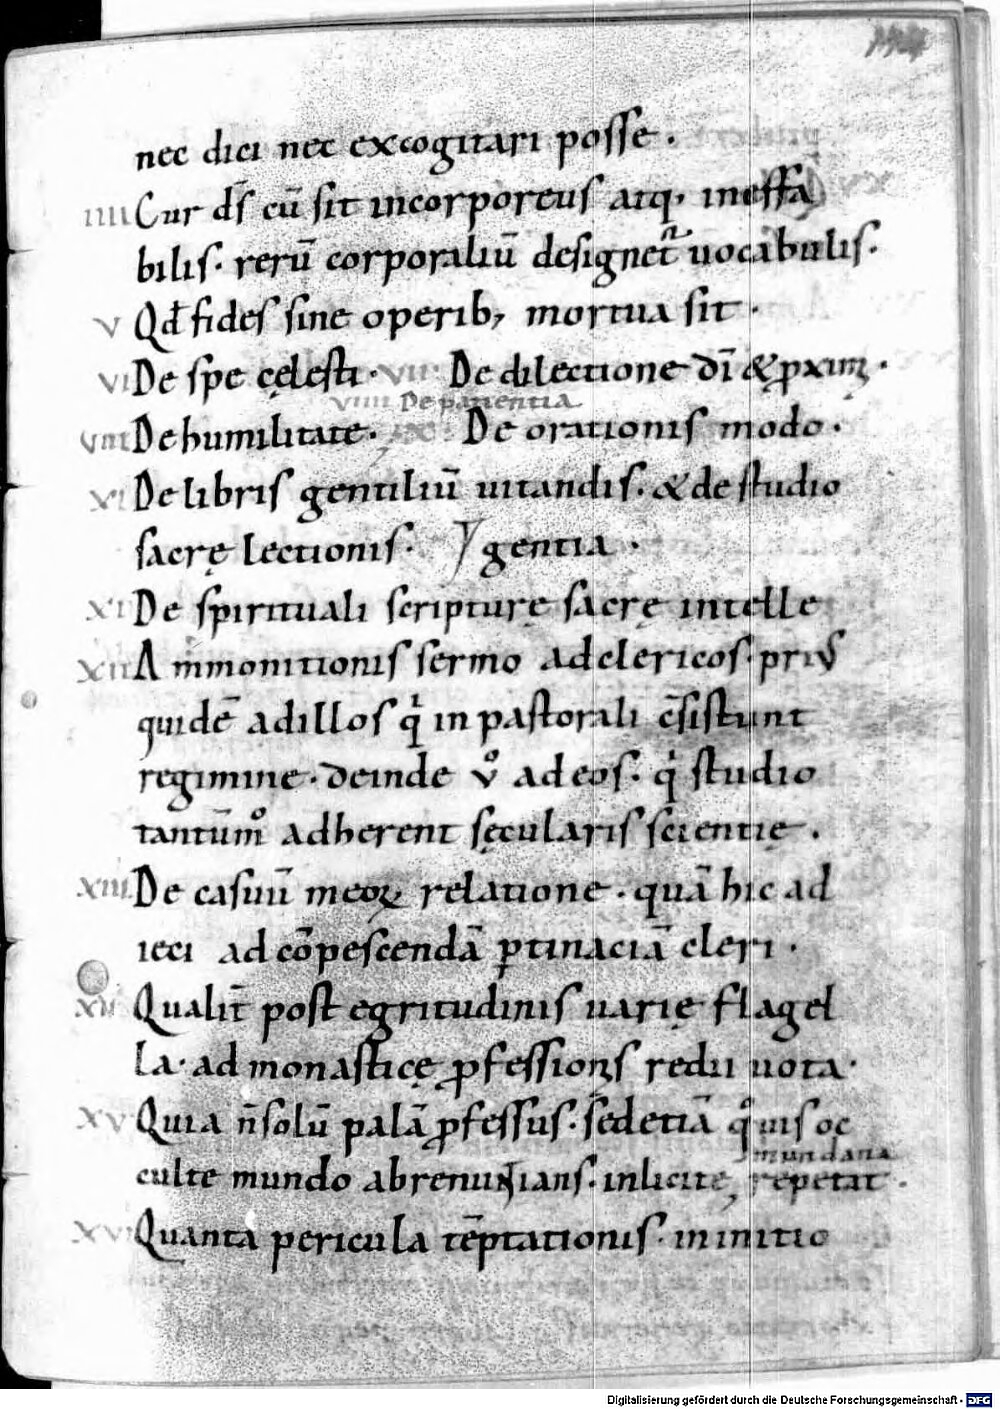 nec dici nec excogitari posse .
IIII Cur ds̄ cū sit incorporeus atq, ineffa
bilis. rerū corporaliū designet᷑ uocabulis.
V Qd̄ fides sine operib, mortua sit .
VI De spe cęlesti . VII De dilectione dī & ꝓximi .
VIIII De patientia
VIII De humilitate . De orationis modo .
XI De libris gentiliū uitandis . & de studio
sacrę lectionis . gentia .
De spirituali scripturę sacrę intelle
XII Ammonitionis sermo ad clericos . priꝰ
quidē ad illos qͥ in pastorali c̄sistunt
regimine . deinde vͦ ad eos . qͥ studio
tantūmͦ adherent sęcularis scientię .
XIII De casuū meoꝝ relatione . quā hic ad
ieci ad cōpescendā ꝑtinaciā cleri .
Qualit̄ post egritudinis uarię flagel
la . ad monasticę ꝓfessionis redii uota .
XV Quia n̄ solū palā ꝓfessus . sed etiā qͥuis oc
mundana
culte mundo abrenuntians . inlicite, repetat .
XVI Quanta pericula tēptationis . in initio
Digitalisierung gefördert durch die Deutsche Forschungsgemeinschaft - DFG